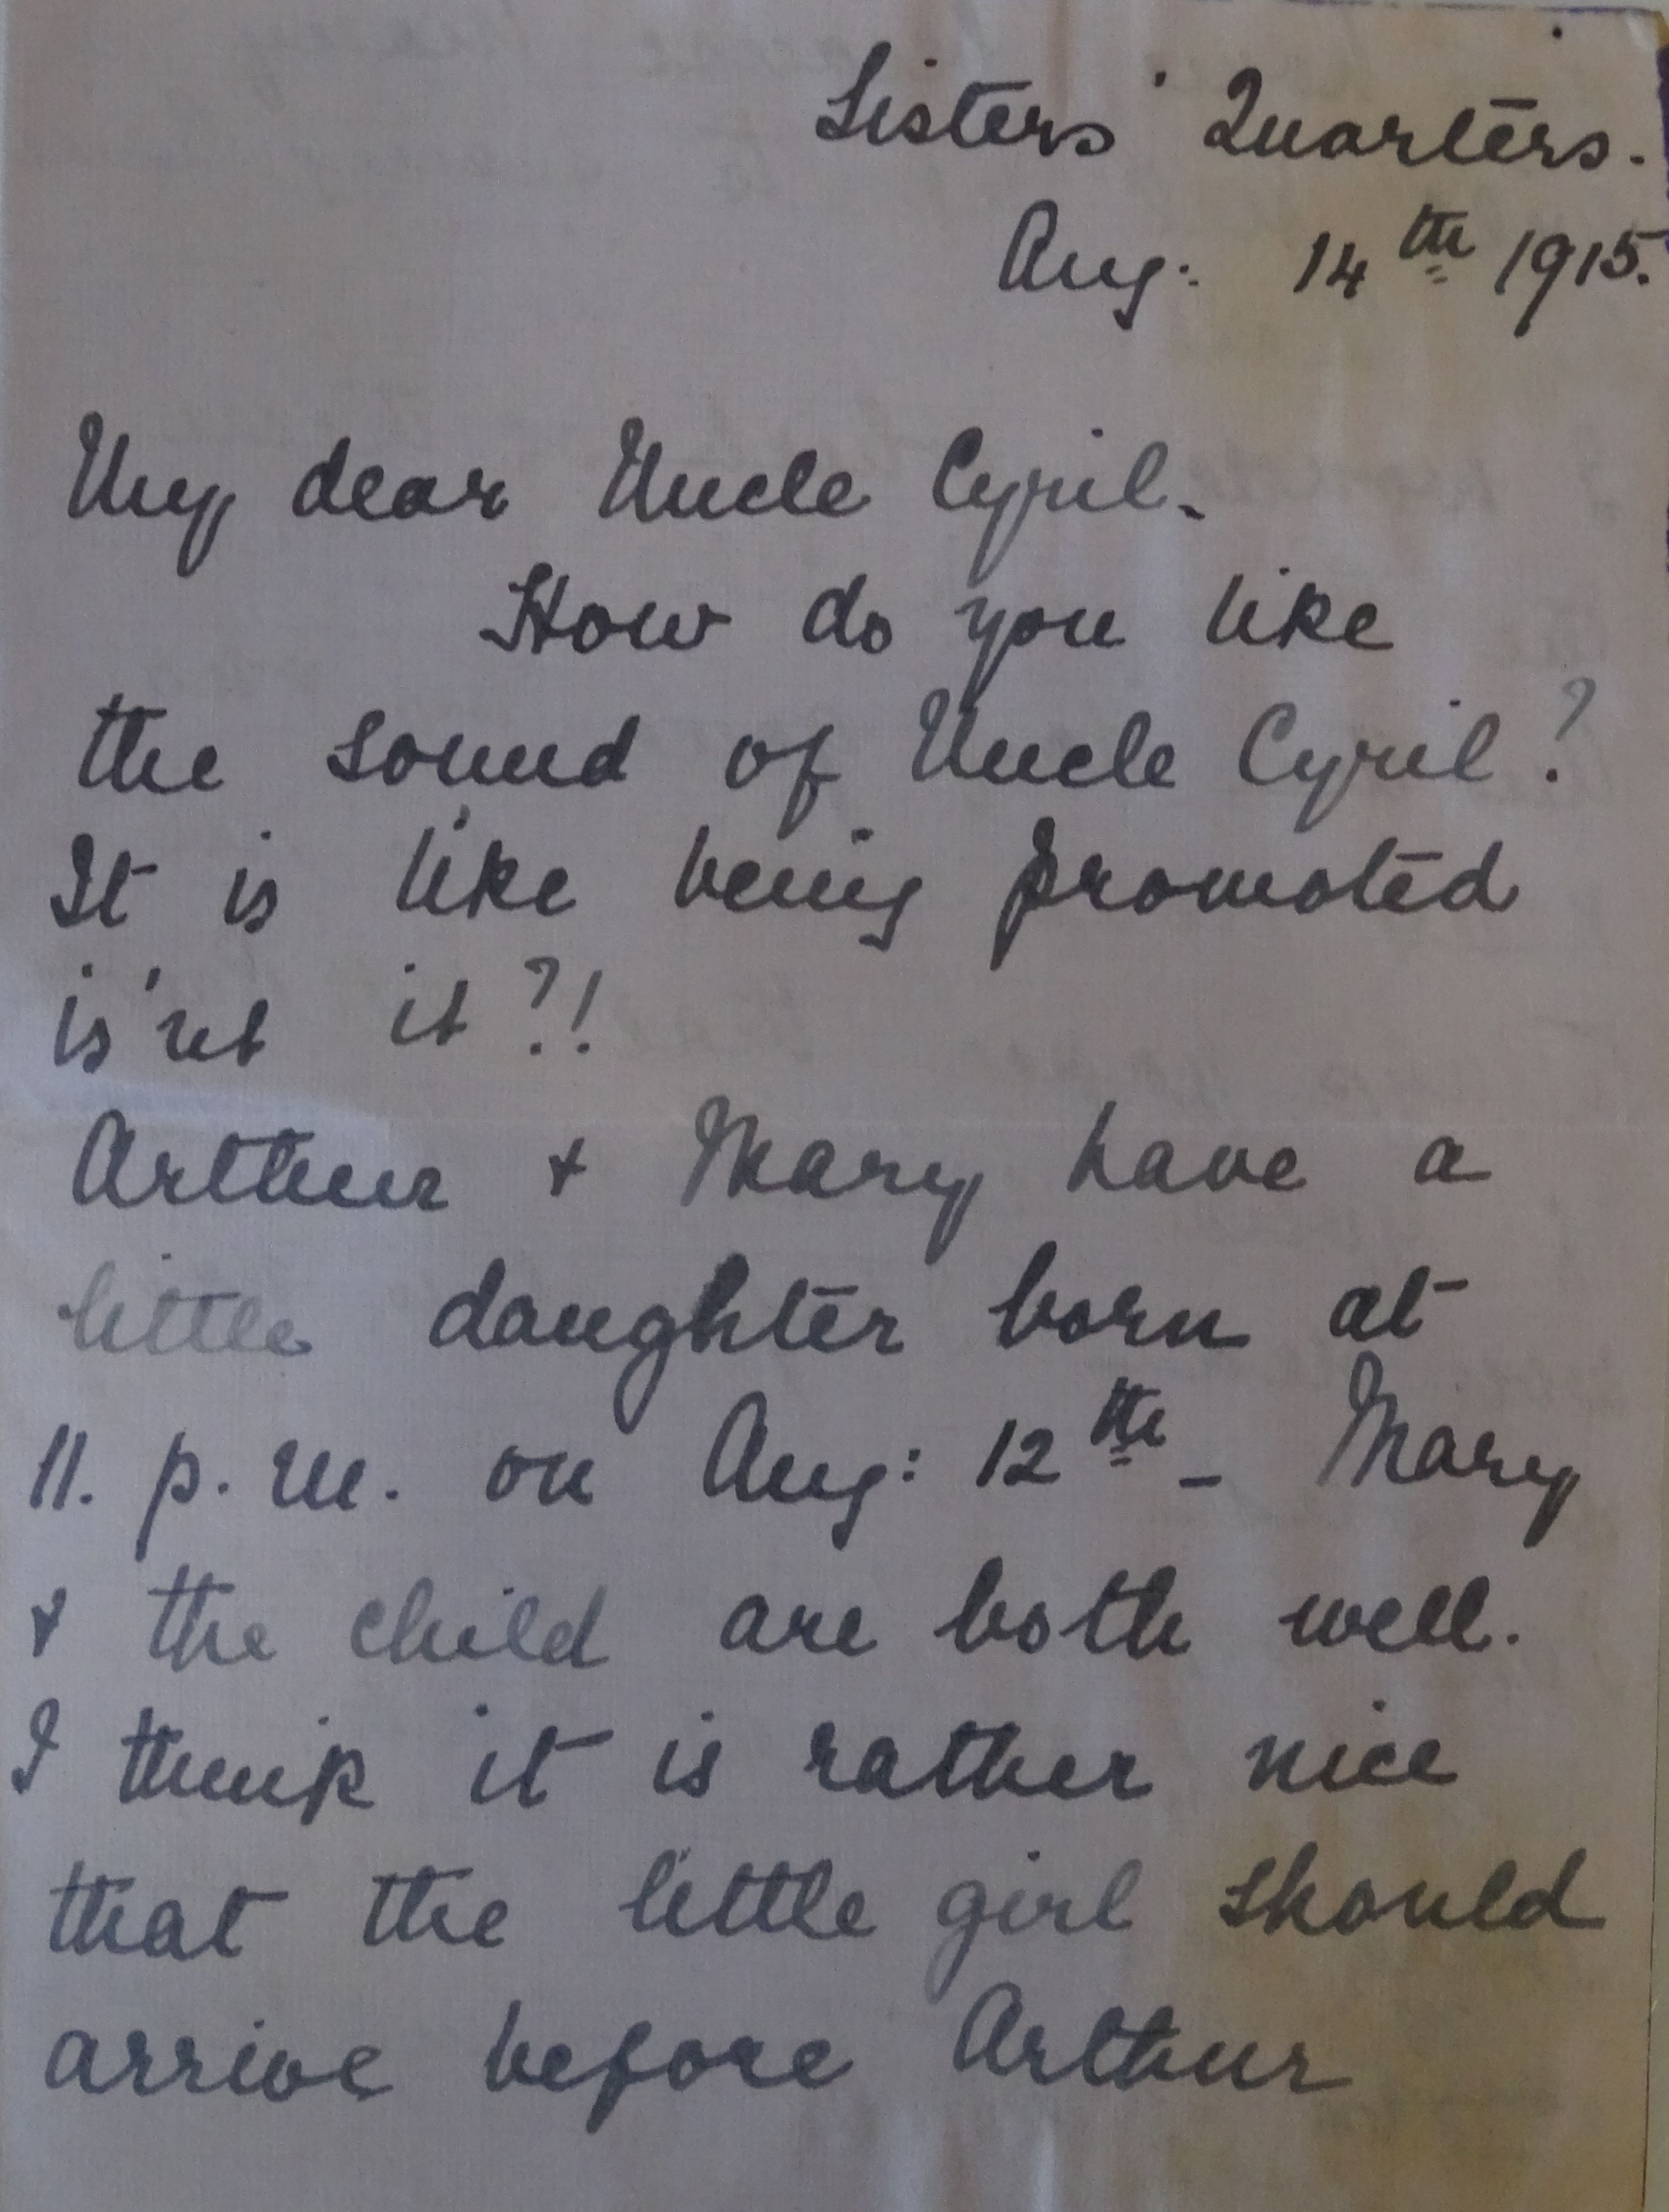 Sisters' Quarters.
Aug: 14th 1915.
My dear Uncle Cyril.
How do you like
the sound of Uncle Cyril?
It is like being promoted
is'nt it?!
Arthur & Mary have a
little daughter born at
11. p.m. on Aug: 12th - Mary
& the child are both well.
I think it is rather nice
that the little girl should
arrive before Arthur